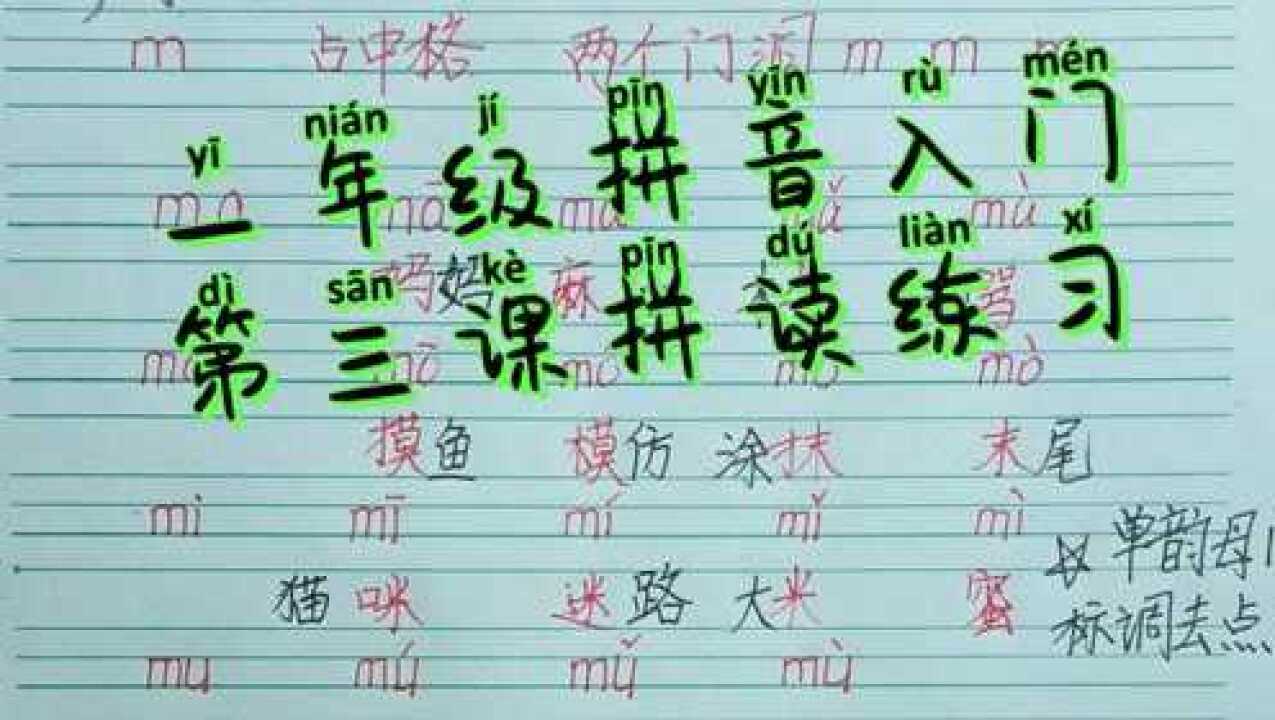 m 占中格 两个门洞 m m
yī nián jí pīn yīn rù mén
一年级拼音入门
mù
dì sān kè pīn dú liàn xí
第三课拼读练习
妈妈 麻 骂
mò
摸鱼 模仿 涂抹 末尾
mi mī mí mǐ mì
☆ 单韵母i
猫咪 迷路 大米 蜜
标调去点
mu mú mǔ mù